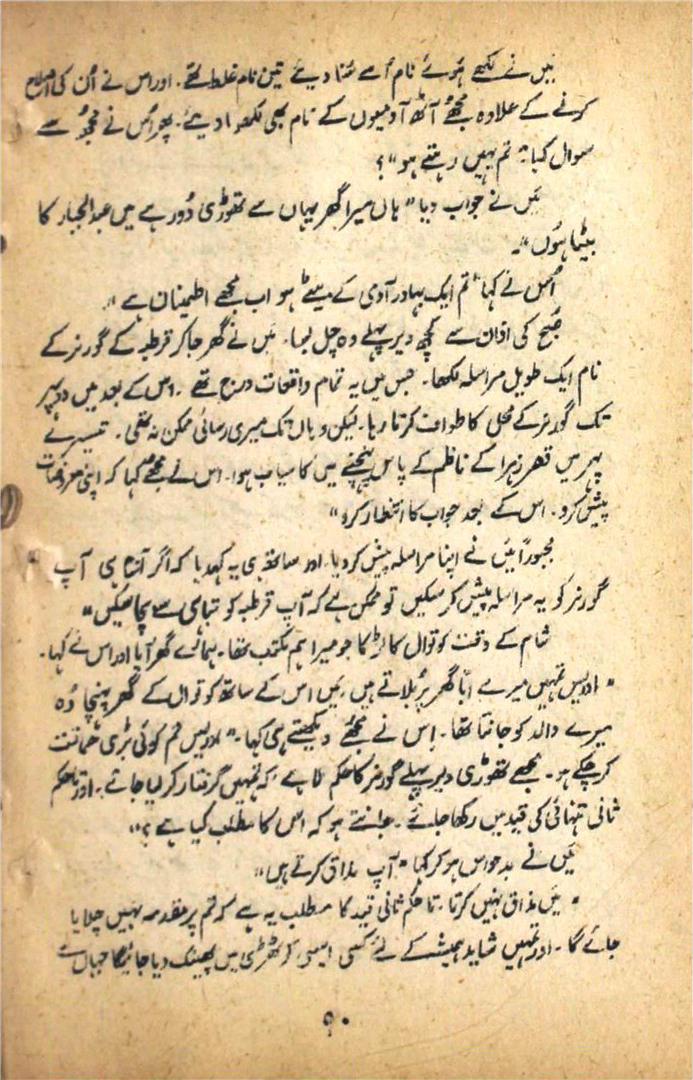 میں نے لکھے ہوئے نام اُسے سُنا دیئے تین نام غلط تھے۔ اور اس نے اُن کی اصلاح
کرنے کے علاوہ مجھے آٹھ آدمیوں کے نام بھی لکھوا دیئے۔ پھر اُس نے مجھ سے
سوال کیا "تم یہیں رہتے ہو"؟
میں نے جواب دیا "ہاں میرا گھر یہاں سے تھوڑی دُور ہے میں عبدالجبار کا
بیٹا ہوں"۔
اُس نے کہا "تم ایک بہادر آدمی کے بیٹے ہو اب مجھے اطمینان ہے"۔
صُبح کی اذان سے کچھ دیر پہلے وہ چل بسا۔ میں نے گھر جا کر قرطبہ کے گورنر کے
نام ایک طویل مراسلہ لکھا۔ جس میں یہ تمام واقعات درج تھے۔ اس کے بعد میں دوپہر
تک گورنر کے محل کا طواف کرتا رہا۔ لیکن وہاں تک میری رسائی ممکن نہ تھی۔ تیسرے
پہر میں قصرِ زہرا کے ناظم کے پاس پہنچنے میں کامیاب ہوا۔ اس نے مجھے کہا کہ اپنی معروضات
پیش کرو۔ اس کے بعد جواب کا انتظار کرو"
مجبوراً میں نے اپنا مراسلہ پیش کر دیا۔ اور ساتھ ہی یہ کہدیا کہ اگر آج ہی آپ
گورنر کو یہ مراسلہ پیش کر سکیں تو ممکن ہے کہ آپ قرطبہ کو تباہی سے بچا سکیں"
شام کے وقت کوتوال کا لڑکا جو میرا ہم مکتب تھا۔ ہمارے گھر آیا اور اس نے کہا۔
"ادریس تمہیں میرے ابّا گھر پر بُلاتے ہیں۔ میں اس کے ساتھ کوتوال کے گھر پہنچا وُہ
میرے والد کو جانتا تھا۔ اس نے مجھے دیکھتے ہی کہا۔ "ادریس تم کوئی بُری حماقت
کر چکے ہو۔ مجھے تھوڑی دیر پہلے گورنر کا حکم ملا ہے کہ تمہیں گرفتار کر لیا جائے۔ اور تا حکم
ثانی تنہائی کی قید میں رکھا جائے۔ جانتے ہو کہ اس کا مطلب کیا ہے؟"
میں نے بدحواس ہو کر کہا "آپ مذاق کرتے ہیں"
"میں مذاق نہیں کرتا۔ تا حکم ثانی قید کا مطلب یہ ہے کہ تم پر مقدمہ نہیں چلایا
جائے گا۔ اور تمہیں شاید ہمیشہ کے لئے کسی ایسی کوٹھڑی میں پھینک دیا جائیگا جہاں سے
۵۰